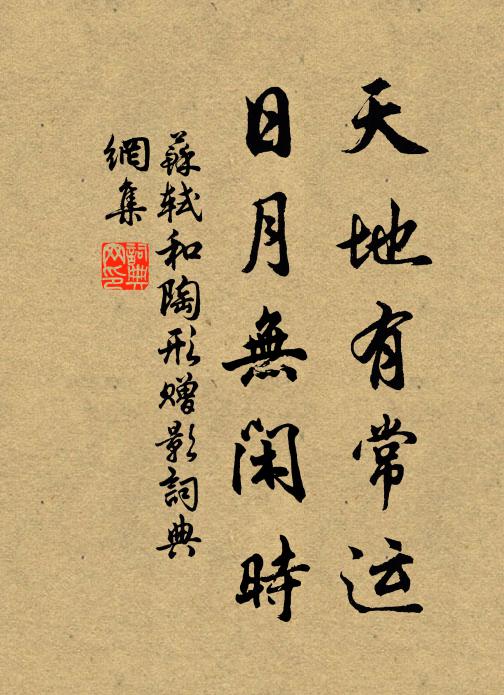 天地有常运
日月無閑時
蘇軾和陶形贈影詞典
網集
詞典
网印